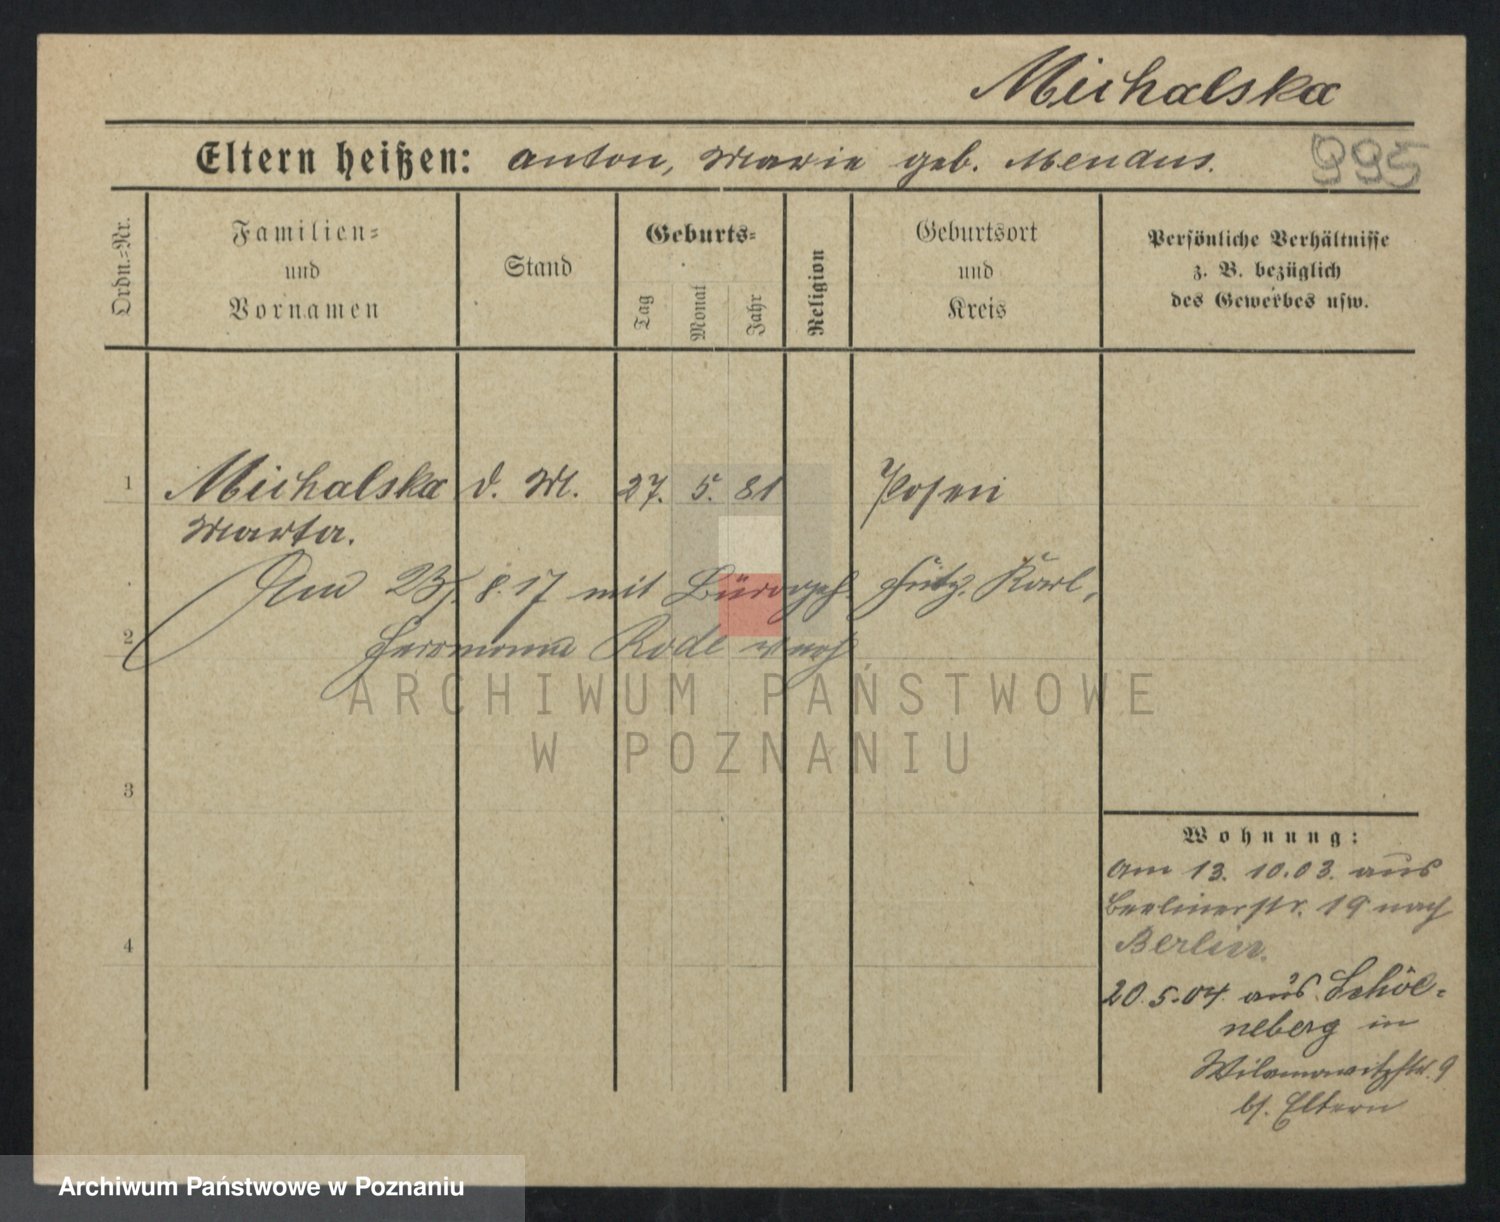 Michalska
Eltern heißen: Anton, Marie geb. Mendus.
995
Ordn.-Nr.
Familien-
und
Vornamen
Stand
Geburts-
Tag
Monat
Jahr
Religion
Geburtsort
und
Kreis
Persönliche Verhältnisse
z. B. bezüglich
des Gewerbes usw.
1
Michalska d. M. 27. 5. 81 Posen
Marta.
Am 23. 8. 17 mit Bürogeh. Karl,
2
Hermann Rode verh
ARCHIWUM PAŃSTWOWE
W POZNANIU
3
Wohnung:
am 13. 10. 03. aus
Berlinerstr. 19 nach
Berlin.
4
20. 5. 04. aus Schöe-
neberg in
Wilamowitzstr. 9
b/. Eltern
Archiwum Państwowe w Poznaniu